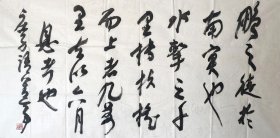 鹏之徙於
南冥也
水击三千
里抟扶摇
而上者九万
里去以六月
息者也